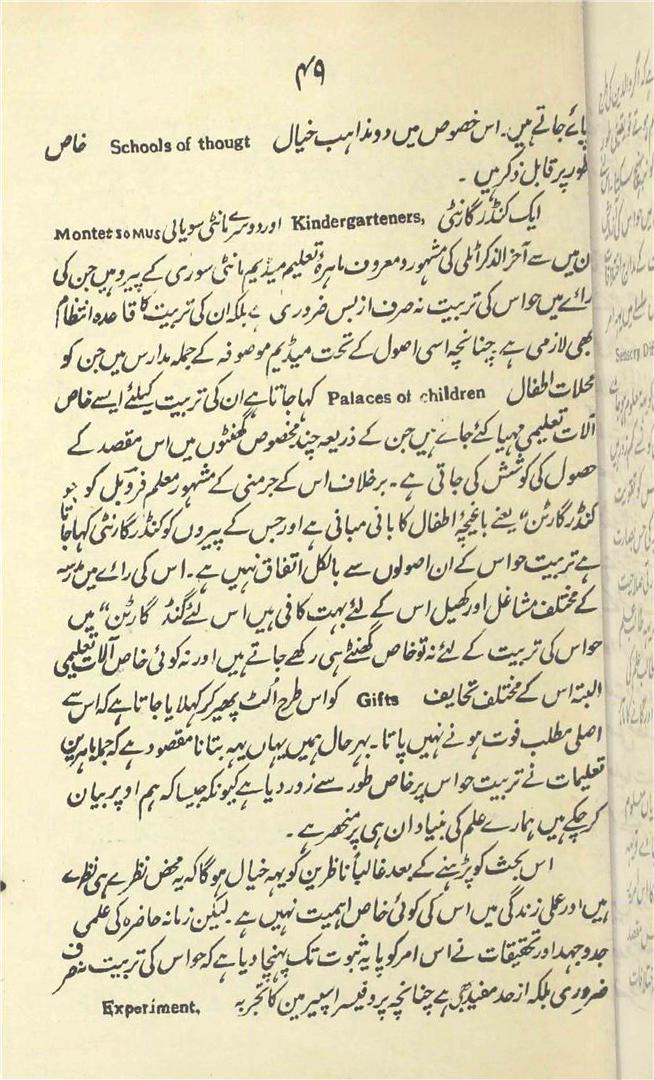 ۴۹
پائے جاتے ہیں۔ اس خصوص میں دو مذاہب خیال Schools of thougt خاص
طور پر قابل ذکر ہیں ۔
ایک کنڈر گارٹنی Kindergarteners, اور دوسرے مانٹی سویالی Montessomus
ان میں سے آخر الذکر اٹلی کی مشہور و معروف ماہرۂ تعلیم میڈیم مانٹی سوری کے پیرو ہیں جن کی
رائے میں حواس کی تربیت نہ صرف از بس ضروری ہے بلکہ ان کی تربیت کا قاعدہ انتظام
بھی لازمی ہے چنانچہ اسی اصول کے تحت میڈیم موصوفہ کے جملہ مدارس میں جن کو
محلات اطفال Palaces of children کہا جاتا ہے ان کی تربیت کیلئے ایسے خاص
آلات تعلیمی مہیا کئے جاتے ہیں جن کے ذریعہ چند مخصوص گھنٹوں میں اس مقصد کے
حصول کی کوشش کی جاتی ہے۔ برخلاف اس کے جرمنی کے مشہور معلم فروبل کو جو
کنڈر گارٹن" یعنے باغیچۂ اطفال کا بانی مبانی ہے اور جس کے پیروں کو کنڈر گارٹنی کہا جاتا
ہے تربیت حواس کے ان اصولوں سے بالکل اتفاق نہیں ہے۔ اس کی رائے میں مدرسہ
کے مختلف مشاغل اور کھیل اس کے لئے بہت کافی ہیں اس لئے کنڈر گارٹن" میں
حواس کی تربیت کے لئے نہ تو خاص گھنٹے ہی رکھے جاتے ہیں اور نہ کوئی خاص آلات تعلیمی
البتہ اس کے مختلف تحایف Gifts کو اس طرح الٹ پھیر کر کہلایا جاتا ہے کہ اس سے
اصلی مطلب فوت ہونے نہیں پاتا۔ بہرحال ہمیں یہاں یہہ بتانا مقصود ہے کہ جملہ ماہرین
تعلیمات نے تربیت حواس پر خاص طور سے زور دیا ہے کیونکہ جیسا کہ ہم اوپر بیان
کر چکے ہیں ہمارے علم کی بنیاد ان ہی پر منحصر ہے ۔
اس بحث کو پڑہنے کے بعد غالباً ناظرین کو یہہ خیال ہوگا کہ یہ محض نظرے ہی نظرے
ہیں اور عملی زندگی میں اس کی کوئی خاص اہمیت نہیں ہے لیکن زمانہ حاضرہ کی علمی
جدوجہد اور تحقیقات نے اس امر کو پایۂ ثبوت تک پہنچا دیا ہے کہ حواس کی تربیت نہ صرف
ضروری بلکہ از حد مفید بھی ہے چنانچہ پروفیسر اسپیرمین کا تجربہ Experiment,